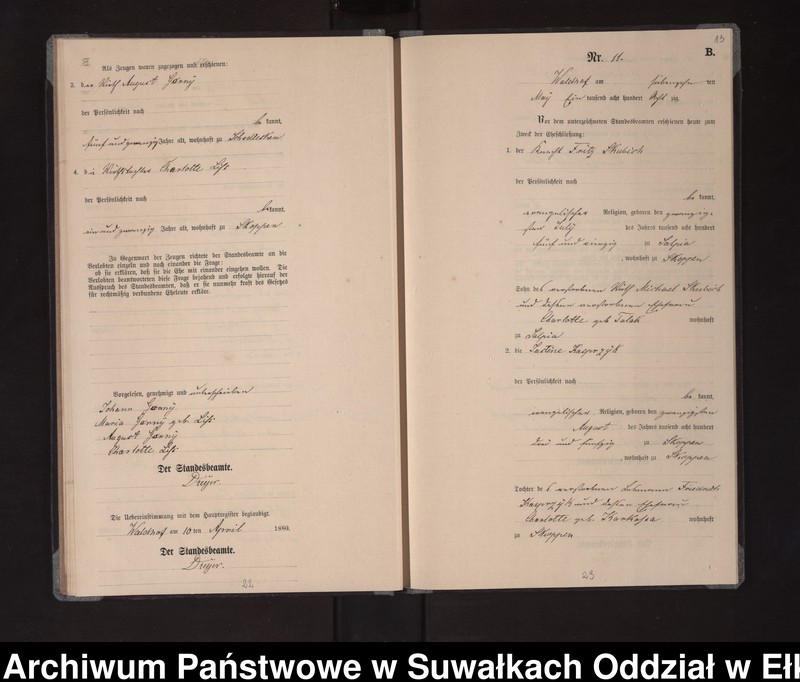 Als Zeugen waren zugezogen und erschienen:
3. der Wirth August Gorny
der Persönlichkeit nach
be kannt,
fünf und zwanzig Jahre alt, wohnhaft zu
4. die Wirthstochter Charlotte
der Persönlichkeit nach
be kannt,
ein und zwanzig Jahre alt, wohnhaft zu Skoppen
In Gegenwart der Zeugen richtete der Standesbeamte an die
Verlobten einzeln und nach einander die Frage:
ob sie erklären, daß sie die Ehe mit einander eingehen wollen. Die
Verlobten beantworteten diese Frage bejahend und erfolgte hierauf der
Ausspruch des Standesbeamten, daß er sie nunmehr kraft des Gesetzes
für rechtmäßig verbundene Eheleute erkläre.
Vorgelesen, genehmigt und unterschrieben
Johann Gorny
Maria Gorny geb.
August Gorny
Charlotte
Der Standesbeamte.
Dreyer.
Die Uebereinstimmung mit dem Hauptregister beglaubigt.
Waldhof am 10 ten April 1880.
Der Standesbeamte.
Dreyer.
22
13
B.
Nr. 11.
Waldhof am siebenzehn ten
May Ein tausend acht hundert Acht zig.
Vor dem unterzeichneten Standesbeamten erschienen heute zum
Zweck der Eheschließung:
1. der Knecht Fritz Skubich
der Persönlichkeit nach
be kannt,
evangelischer Religion, geboren den
sten July des Jahres tausend acht hundert
fünf und zu Salpia
, wohnhaft zu Skoppen
Sohn des verstorbenen Wirth Michael Skubich
und dessen verstorbenen Ehefrau
Charlotte geb wohnhaft
zu Salpia
2. die Justine Kasprzyk
der Persönlichkeit nach
be kannt,
evangelischer Religion, geboren den zwanzigsten
August des Jahres tausend acht hundert
drei und fünfzig zu Skoppen
, wohnhaft zu Skoppen
Tochter des verstorbenen
Kasprzyk und dessen Ehefrau
Charlotte geb. wohnhaft
zu Skoppen
23
Archiwum Państwowe w Suwałkach Oddział w Ełk